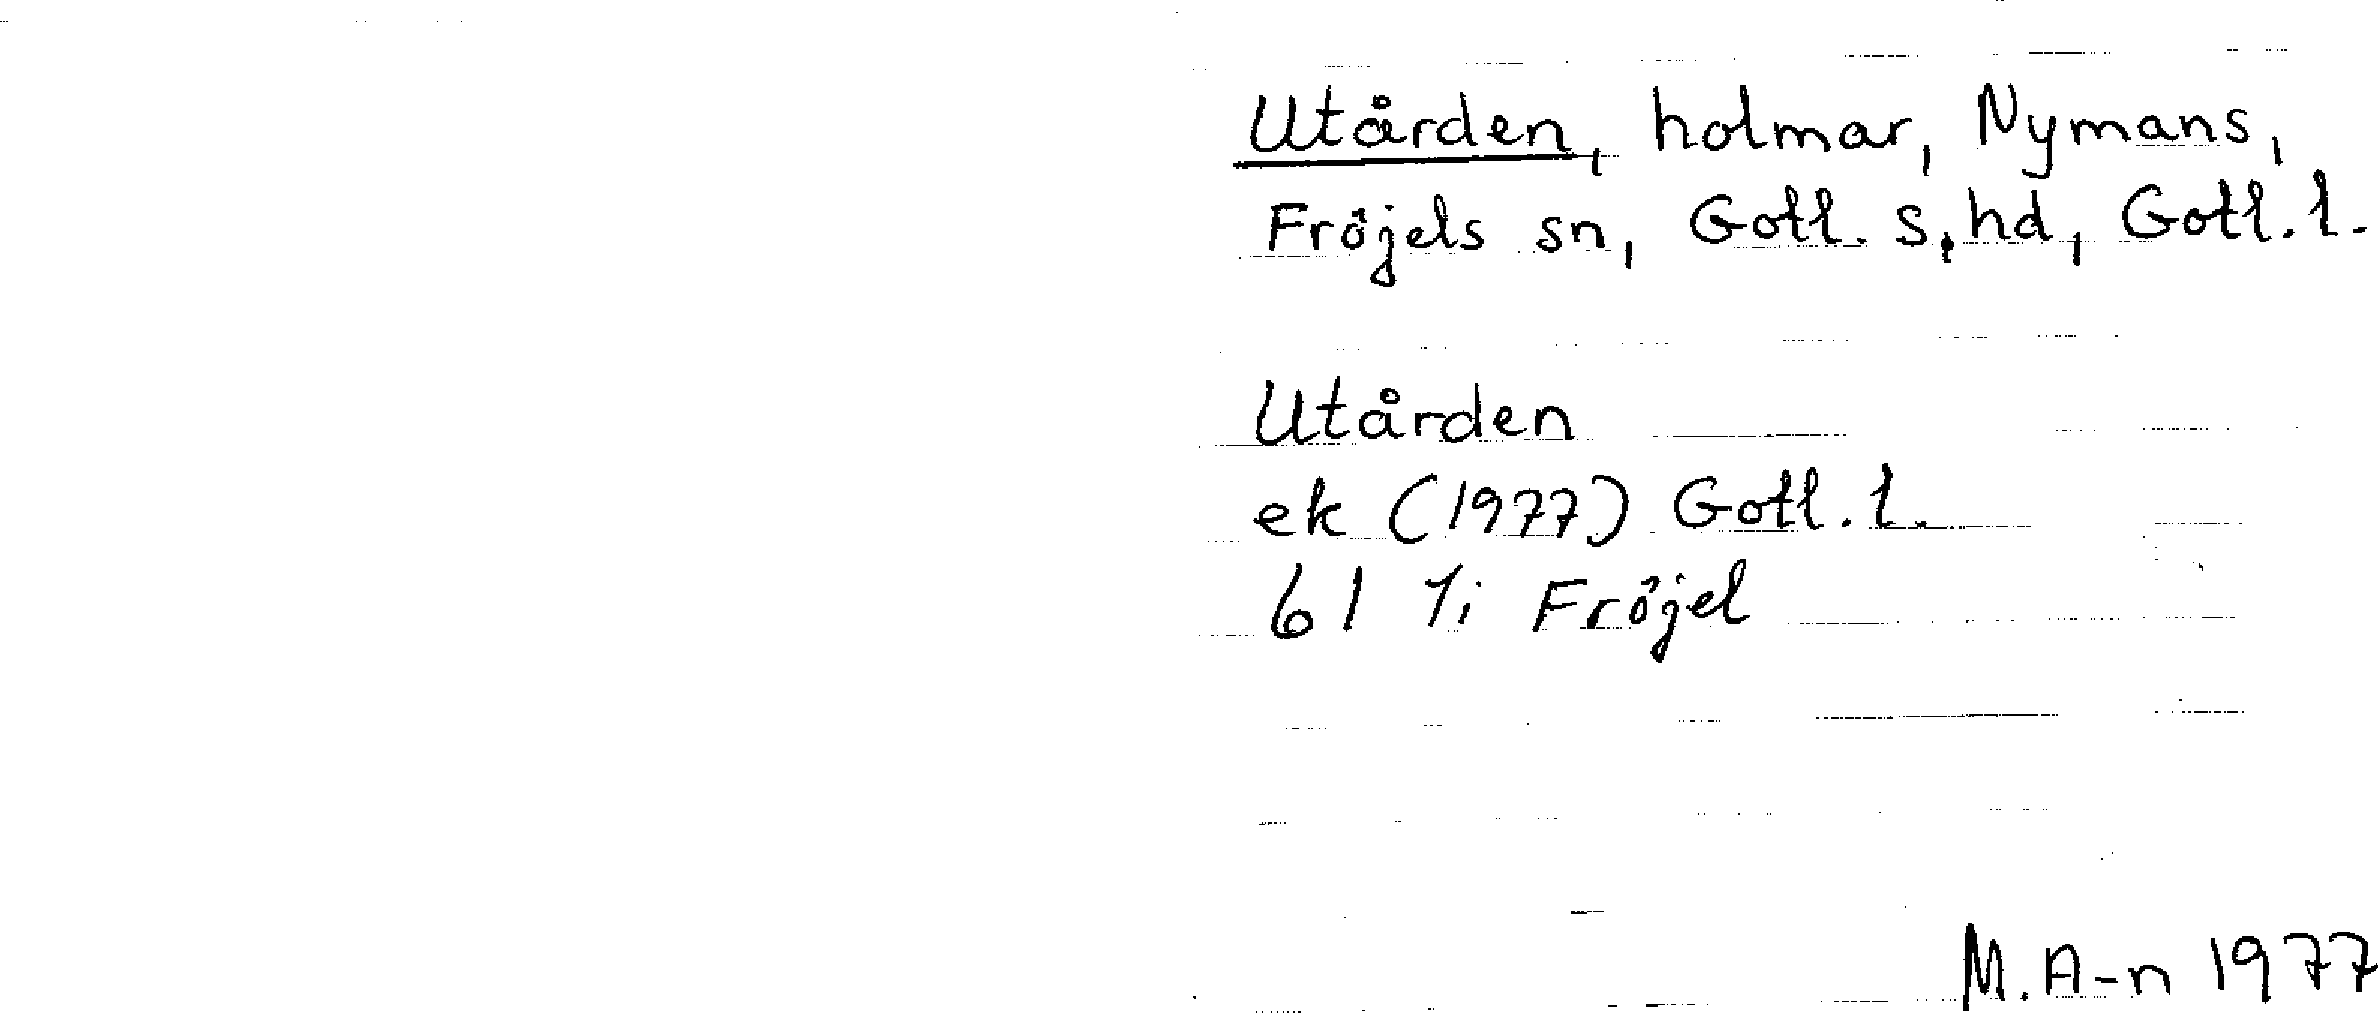 Utården, holmar, Nymans,
Fröjels sn, Gotl. s. hd, Gotl. l.
Utården
ek (1977) Gotl. l.
61 7i Fröjel
M. A-n 1977